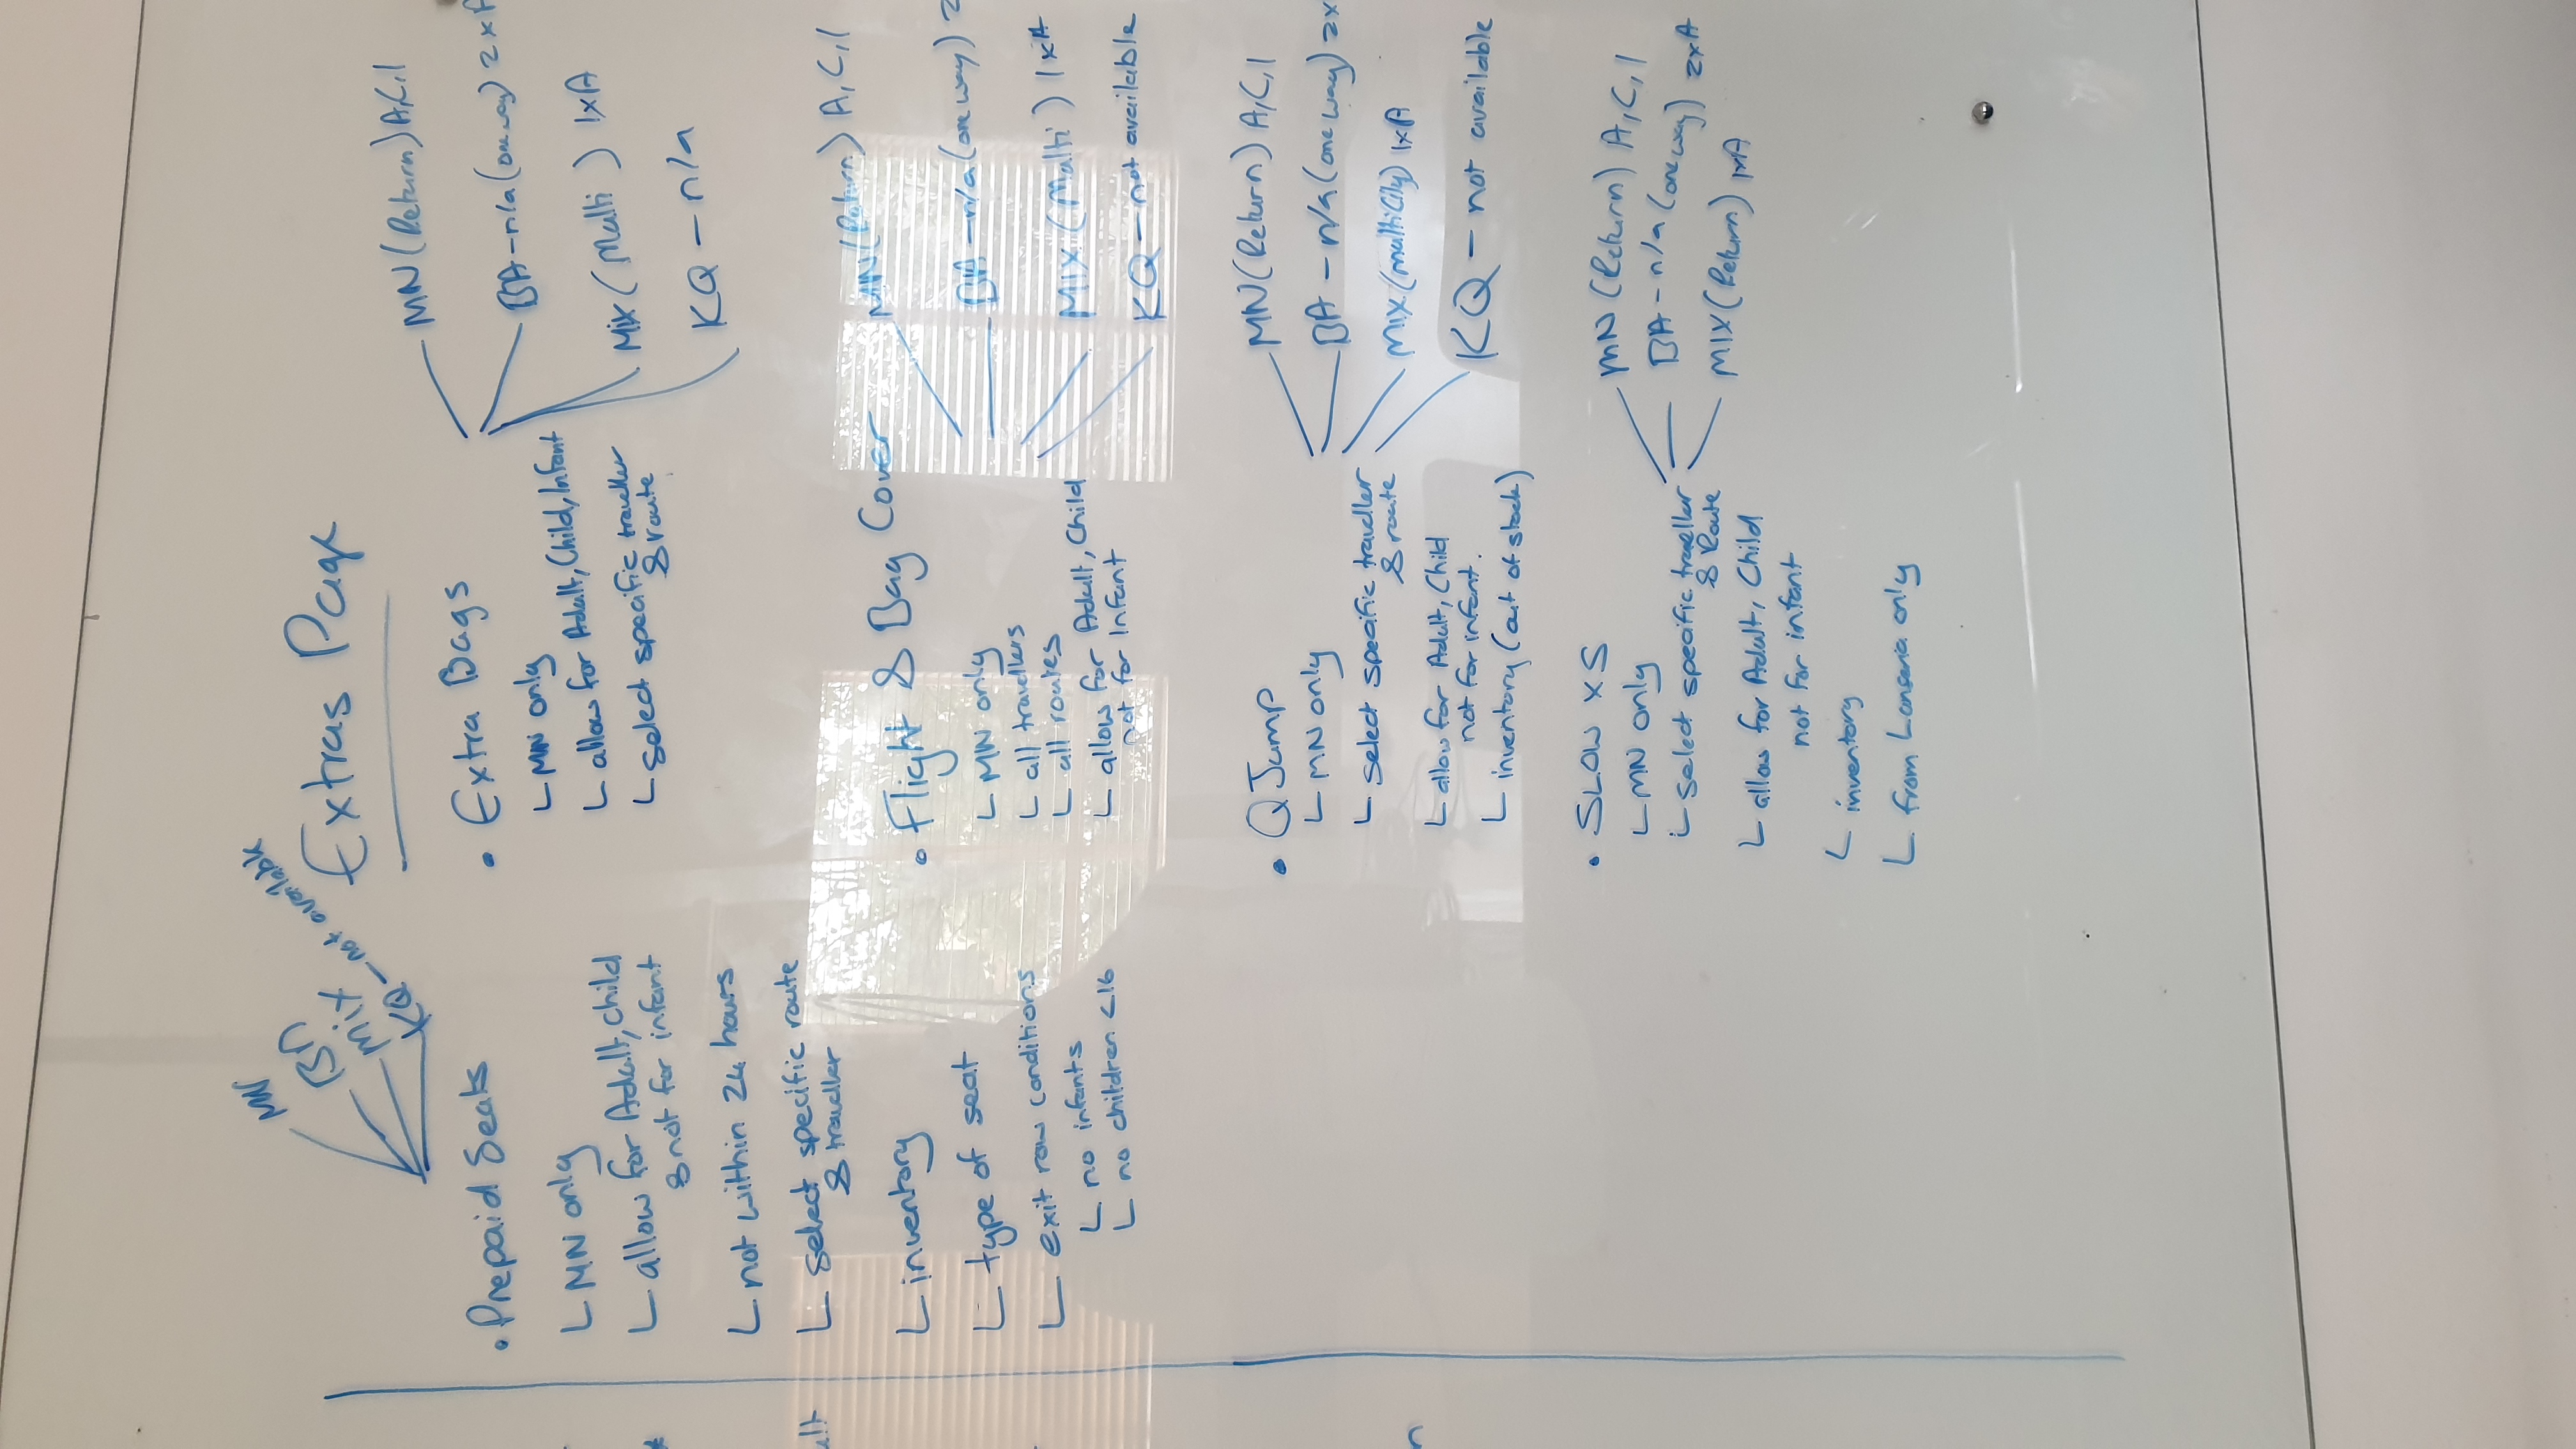 Extras Page
MN
BA
mix
KQ - not available
• Prepaid Seats
└ MN only
└ allow for Adult, child
& not for infant
└ not within 24 hours
└ select specific route
& traveller
└ inventory
└ type of seat
└ exit row conditions
└ no infants
└ no children <16
• Extra Bags
└ MN only
└ allow for Adult, Child, Infant
└ select specific traveller
& route
MN (Return) A,C,I
BA - n/a (one way) 2xA
Mix (Multi) 1xA
KQ - n/a
• Flight & Bag Cover
└ MN only
└ all travellers
└ all routes
└ allow for Adult, Child
not for Infant
MN (Return) A, C, I
BA - n/a (one way) 2
MIX (Multi) 1xA
KQ - not available
• Q Jump
└ MN only
└ select specific traveller
& route
└ allow for Adult, Child
not for infant.
└ inventory (out of stock)
MN (Return) A, C, I
BA - n/a (one way) 2x
MIX (multicity) 1xA
KQ - not available
• SLOW XS
└ MN only
└ select specific traveller
& Route
└ allow for Adult, Child
not for infant
└ inventory
└ from Lanseria only
MN (Return) A, C, I
BA - n/a (one way) 2xA
MIX (Return) 1xA
ult
n